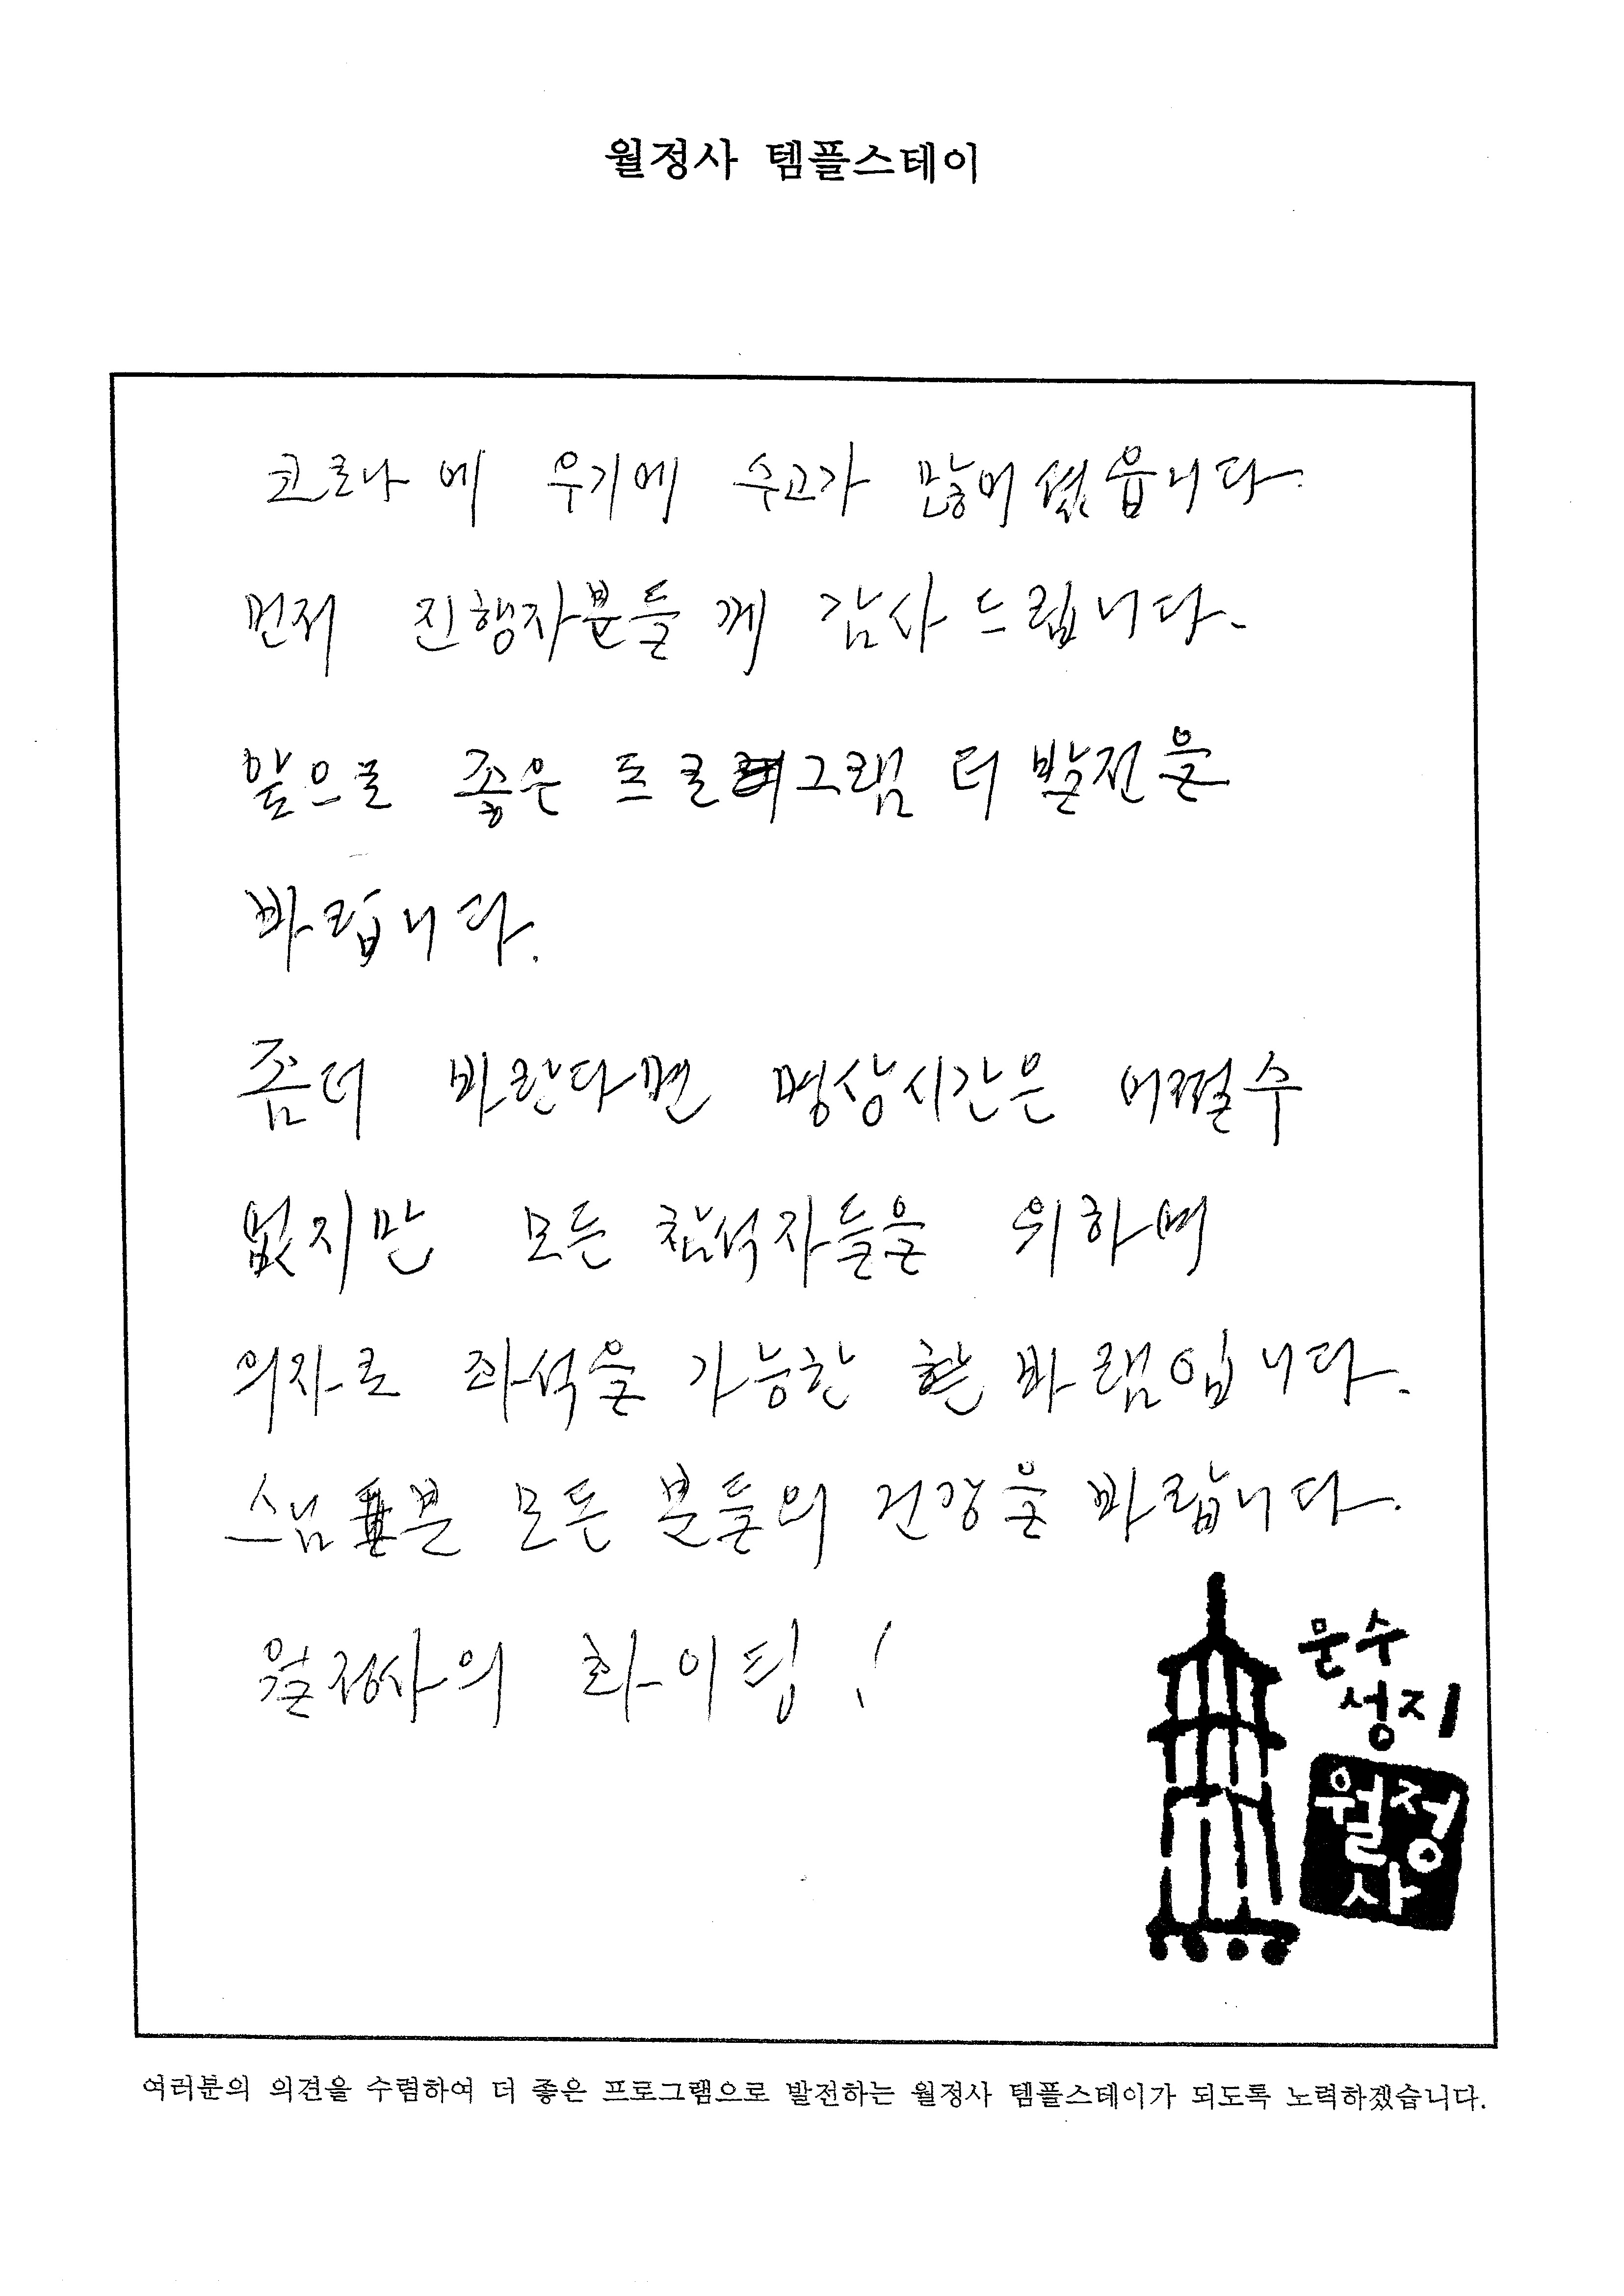 월정사 템플스테이
코로나 에 우기에 수고가 많이 셨읍니다.
먼저 진행자분들 께 감사 드립니다.
앞으로 좋은 프로그램 더 발전을
바랍니다.
좀더 바란다면 명상시간은 어쩔수
없지만 모든 참석자들을 위하며
의자로 좌석을 가능한 바램입니다.
스님 분 모든 분들의 건강을 바랍니다.
월정사의 화이팅!
문수
성지
월정
사
여러분의 의견을 수렴하여 더 좋은 프로그램으로 발전하는 월정사 템플스테이가 되도록 노력하겠습니다.